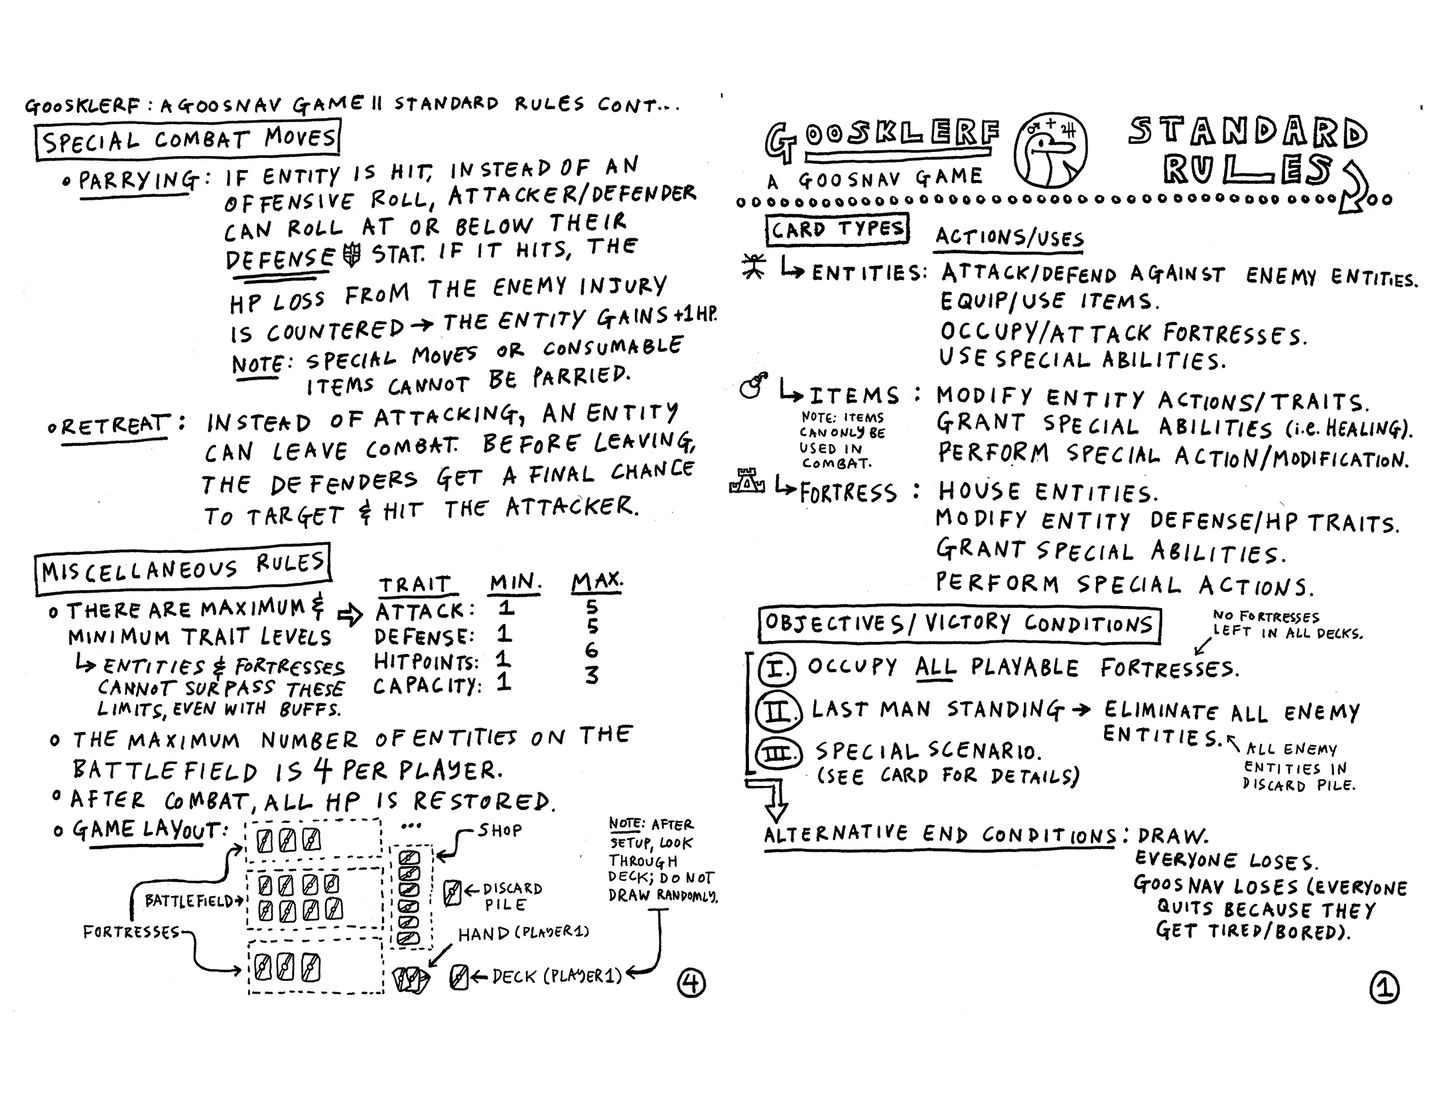 GOOSKLERF: A GOOSNAV GAME || STANDARD RULES CONT...
SPECIAL COMBAT MOVES
PARRYING: IF ENTITY IS HIT, INSTEAD OF AN
OFFENSIVE ROLL, ATTACKER/DEFENDER
CAN ROLL AT OR BELOW THEIR
DEFENSE STAT. IF IT HITS, THE
HP LOSS FROM THE ENEMY INJURY
IS COUNTERED → THE ENTITY GAINS +1 HP.
NOTE: SPECIAL MOVES OR CONSUMABLE
ITEMS CANNOT BE PARRIED.
RETREAT: INSTEAD OF ATTACKING, AN ENTITY
CAN LEAVE COMBAT. BEFORE LEAVING,
THE DEFENDERS GET A FINAL CHANCE
TO TARGET & HIT THE ATTACKER.
MISCELLANEOUS RULES
THERE ARE MAXIMUM &
MINIMUM TRAIT LEVELS
ENTITIES & FORTRESSES
CANNOT SURPASS THESE
LIMITS, EVEN WITH BUFFS.
TRAIT MIN. MAX.
ATTACK: 1 5
DEFENSE: 1 5
HITPOINTS: 1 6
CAPACITY: 1 3
THE MAXIMUM NUMBER OF ENTITIES ON THE
BATTLEFIELD IS 4 PER PLAYER.
AFTER COMBAT, ALL HP IS RESTORED.
GAME LAYOUT:
...
SHOP
BATTLEFIELD
FORTRESSES
DISCARD
PILE
HAND (PLAYER1)
DECK (PLAYER1)
NOTE: AFTER
SETUP, LOOK
THROUGH
DECK; DO NOT
DRAW RANDOMLY.
4
GOOSKLERF
A GOOSNAV GAME
STANDARD
RULES
CARD TYPES ACTIONS/USES
ENTITIES: ATTACK/DEFEND AGAINST ENEMY ENTITIES.
EQUIP/USE ITEMS.
OCCUPY/ATTACK FORTRESSES.
USE SPECIAL ABILITIES.
ITEMS: MODIFY ENTITY ACTIONS/TRAITS.
GRANT SPECIAL ABILITIES (i.e. HEALING).
PERFORM SPECIAL ACTION/MODIFICATION.
NOTE: ITEMS
CAN ONLY BE
USED IN
COMBAT.
FORTRESS: HOUSE ENTITIES.
MODIFY ENTITY DEFENSE/HP TRAITS.
GRANT SPECIAL ABILITIES.
PERFORM SPECIAL ACTIONS.
OBJECTIVES/VICTORY CONDITIONS
NO FORTRESSES
LEFT IN ALL DECKS.
I. OCCUPY ALL PLAYABLE FORTRESSES.
II. LAST MAN STANDING → ELIMINATE ALL ENEMY
ENTITIES.
ALL ENEMY
ENTITIES IN
DISCARD PILE.
III. SPECIAL SCENARIO.
(SEE CARD FOR DETAILS)
ALTERNATIVE END CONDITIONS: DRAW.
EVERYONE LOSES.
GOOSNAV LOSES (EVERYONE
QUITS BECAUSE THEY
GET TIRED/BORED).
1